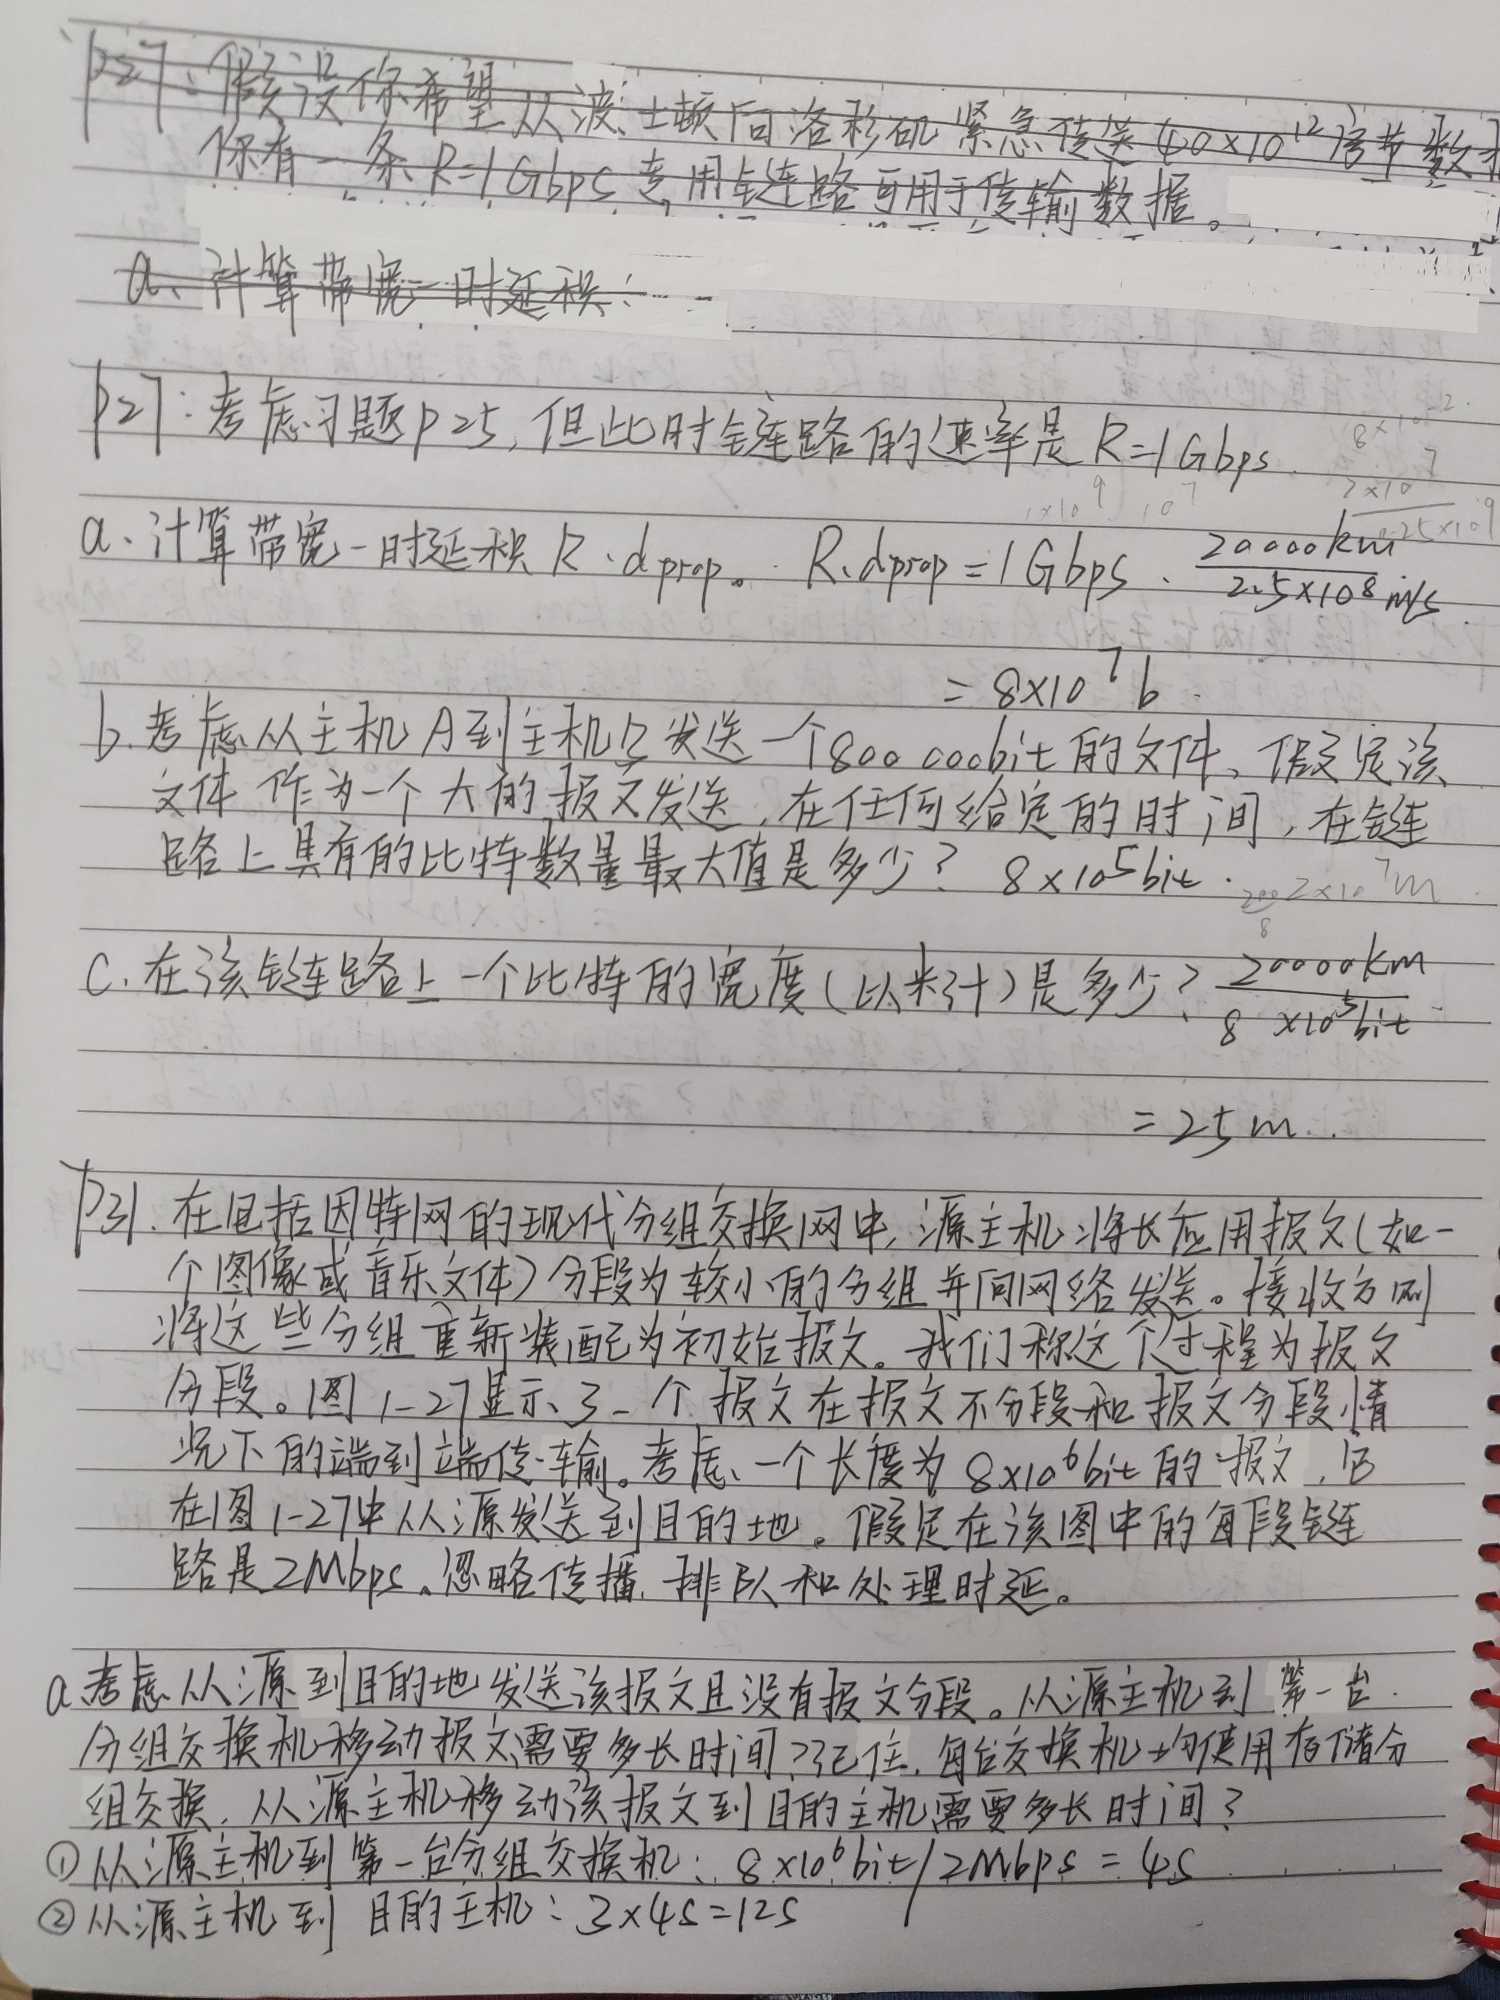 P27:假设你希望从波士顿向洛杉矶紧急传送40×10¹²字节数据
你有一条R=1Gbps专用链路可用于传输数据。
a、计算带宽一时延积:
P27:考虑习题P25,但此时链路的速率是R=1Gbps.
8×10⁻²
a、计算带宽一时延积R·dprop。 R·dprop=1Gbps · 20000km / 2.5×10⁸m/s
1×10⁹ 10⁷
=8×10⁷b
b.考虑从主机A到主机B发送一个800 000bit的文件,假定该
文件作为一个大的报文发送,在任何给定的时间,在链
路上具有的比特数量最大值是多少? 8×10⁵bit.
2×10⁷m
200/8
c.在该链路上一个比特的宽度(以米计)是多少? 20000km / 8×10⁵bit
=25m.
P31.在包括因特网的现代分组交换网中,源主机将长应用报文(如一
个图像或音乐文件)分段为较小的分组并向网络发送。接收方则
将这些分组重新装配为初始报文。我们称这个过程为报文
分段。图1-27显示了一个报文在报文不分段和报文分段情
况下的端到端传输。考虑一个长度为8×10⁶bit的报文,它
在图1-27中从源发送到目的地。假定在该图中的每段链
路是2Mbps。忽略传播、排队和处理时延。
a考虑从源到目的地发送该报文且没有报文分段。从源主机到第一台
分组交换机移动报文需要多长时间?记住,每台交换机均使用存储分
组交换,从源主机移动该报文到目的主机需要多长时间?
①从源主机到第一台分组交换机:8×10⁶bit/2Mbps=4s
②从源主机到目的主机:3×4s=12s